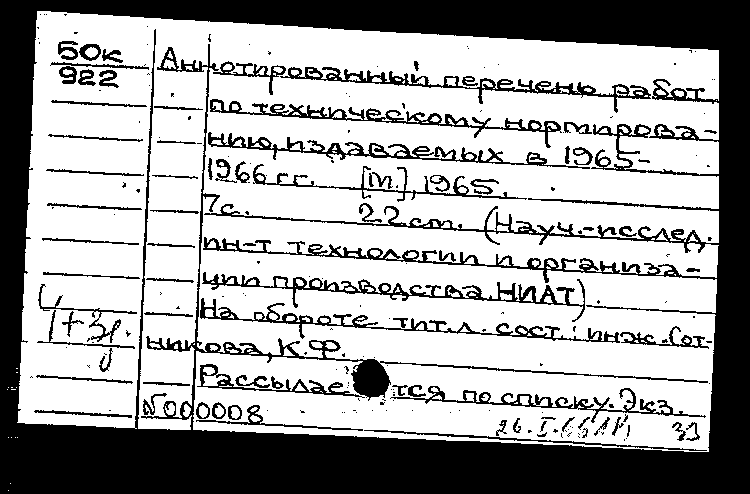 50к
922
Аннотированный перечень работ
по техническому нормирова-
нию, издаваемых в 1965-
1966 гг. [М.], 1965.
7с. 22 см. (Науч.-исслед.
ин-т технологии и организа-
ции производства. НИАТ).
На обороте тит. л. сост.: инж. Сот-
никова, К.Ф.
Рассылается по списку. Экз.
№000008
26.I.66